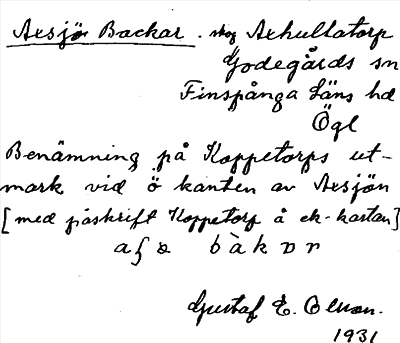 Axsjö Backar. skog Axhultatorp
Godegårds sn
Finspånga läns hd
Ögl
Benämning på Koppetorps ut-
mark vid ö kanten av Axsjön
[med påskrift Koppetorp å ek-kartan]
Gustaf E. Olsson.
1931